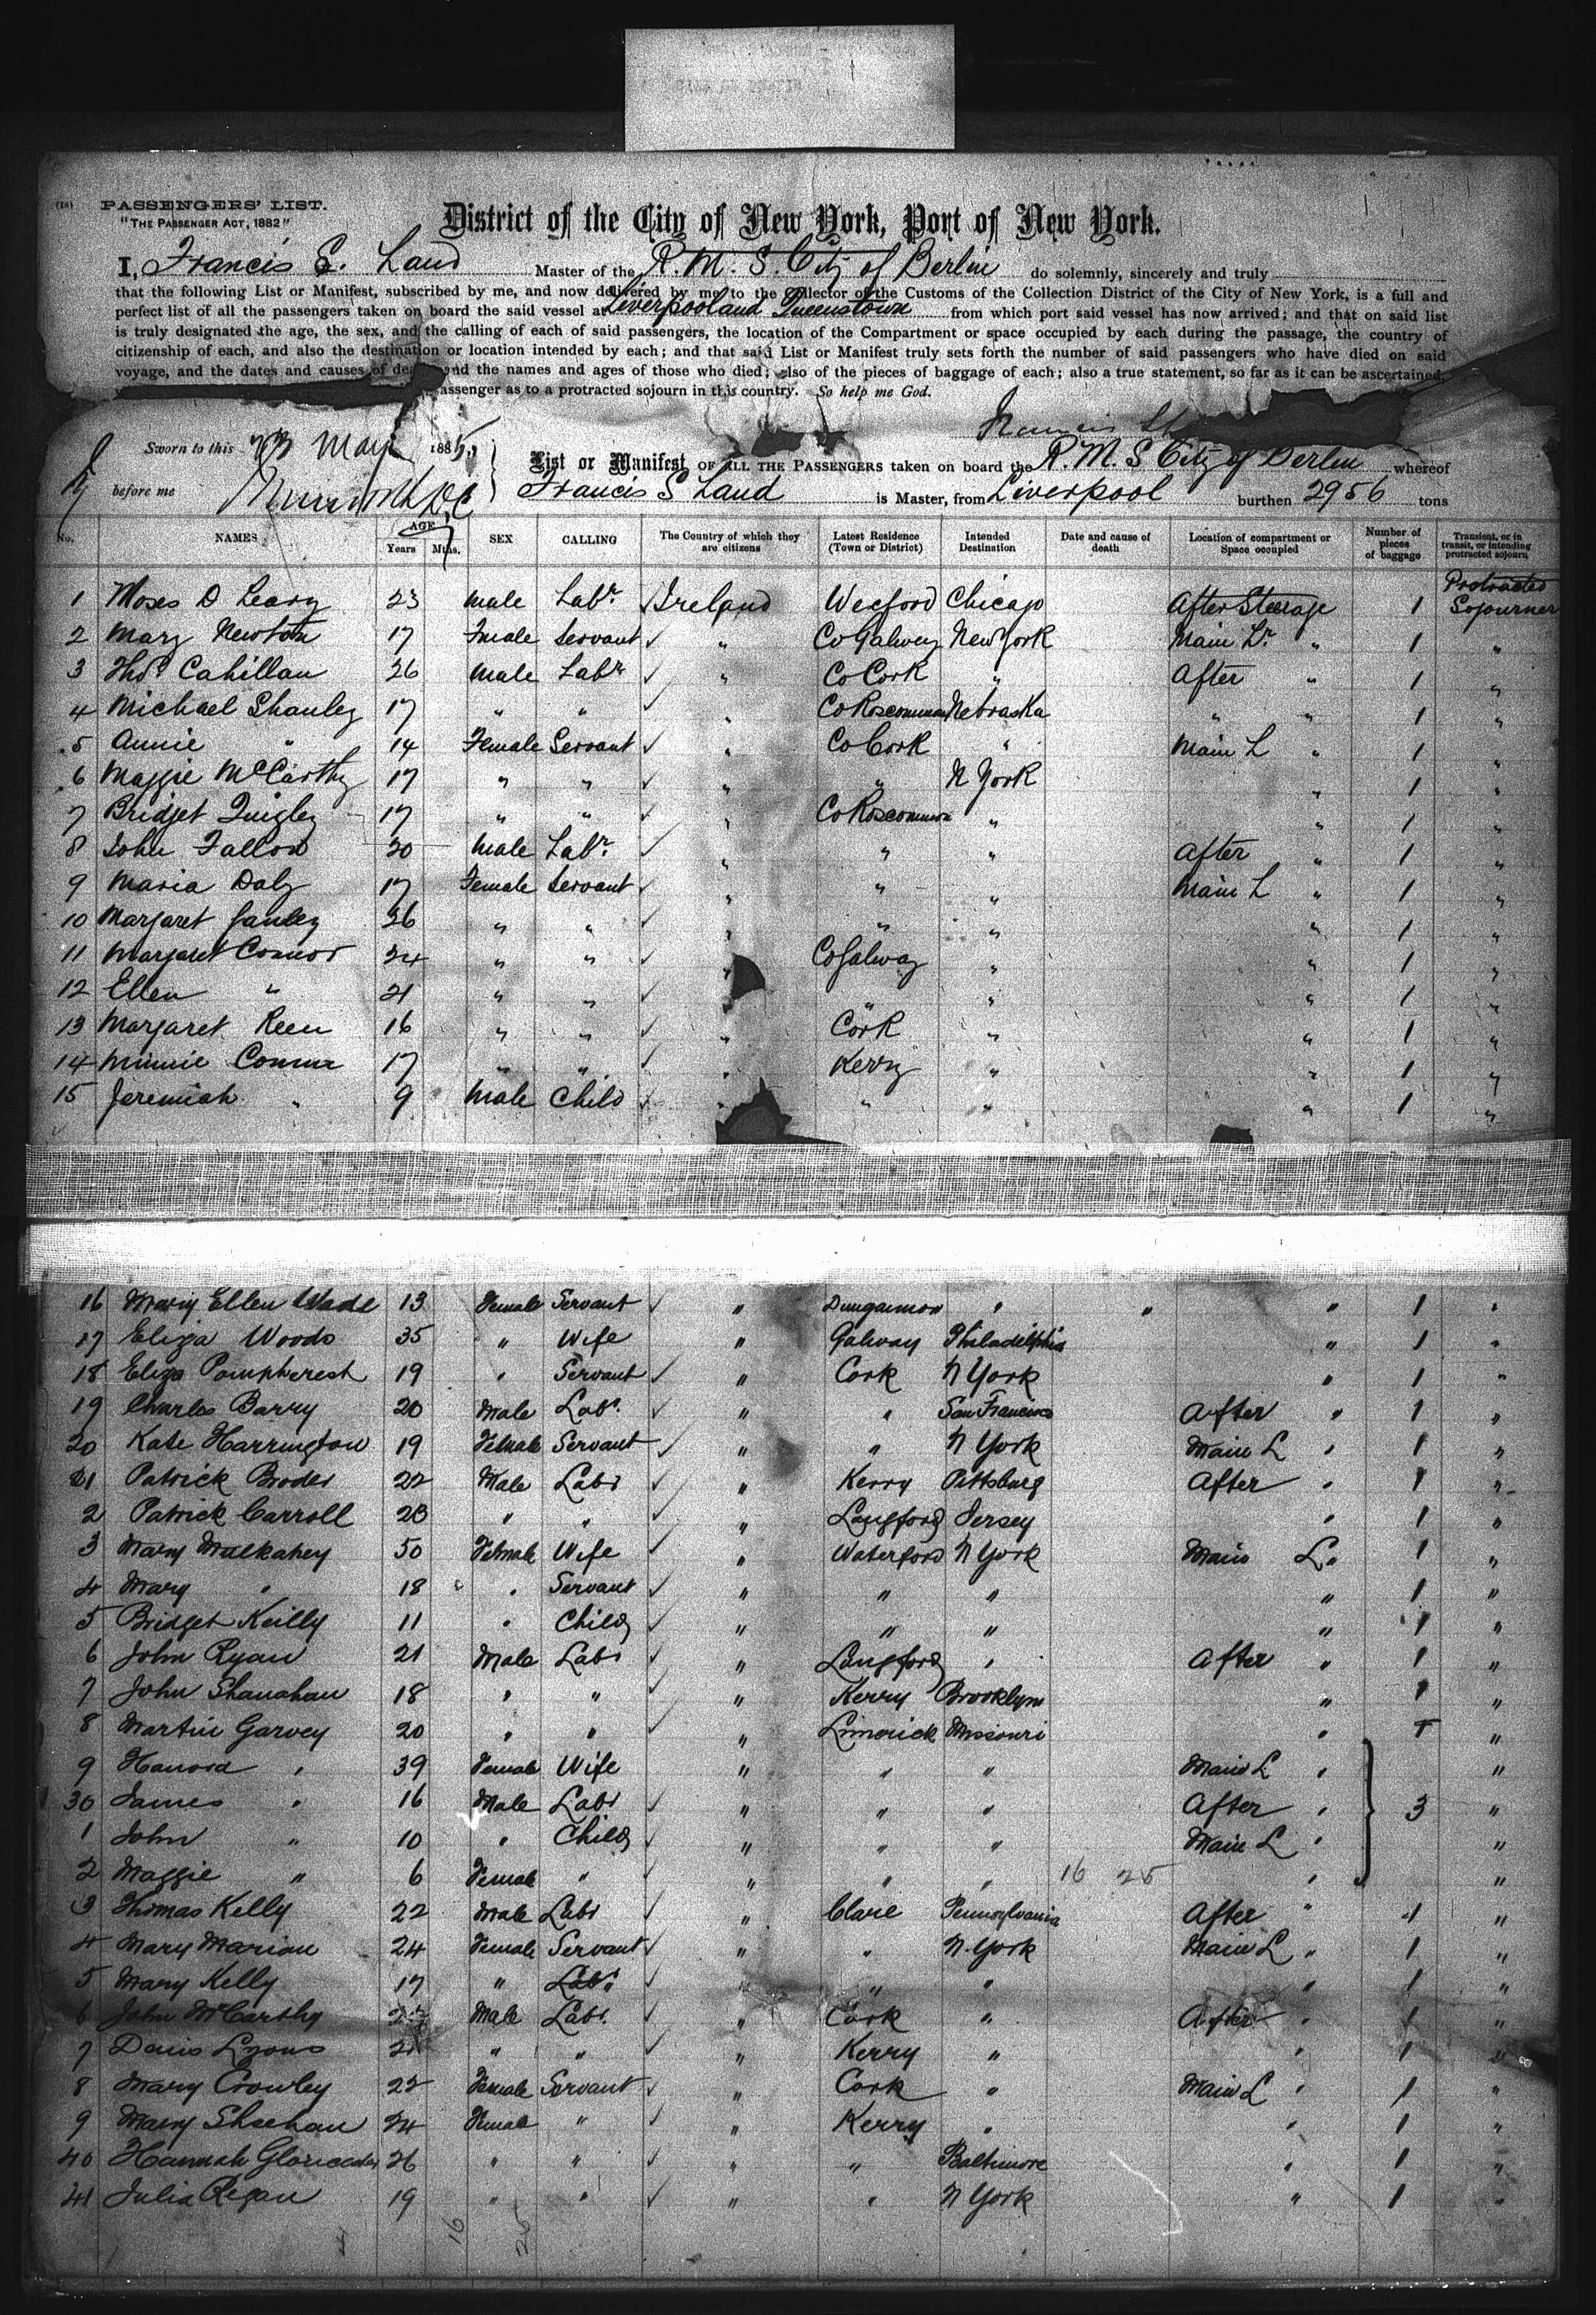 (18) PASSENGERS' LIST.
"THE PASSENGER ACT, 1882"
District of the City of New York, Port of New York.
I, Francis S. Land Master of the R. M. S. City of Berlin do solemnly, sincerely and truly
that the following List or Manifest, subscribed by me, and now delivered by me to the Collector of the Customs of the Collection District of the City of New York, is a full and
perfect list of all the passengers taken on board the said vessel at Liverpool and Queenstown from which port said vessel has now arrived; and that on said list
is truly designated the age, the sex, and the calling of each of said passengers, the location of the Compartment or space occupied by each during the passage, the country of
citizenship of each, and also the destination or location intended by each; and that said List or Manifest truly sets forth the number of said passengers who have died on said
voyage, and the dates and causes of death and the names and ages of those who died; also of the pieces of baggage of each; also a true statement, so far as it can be ascertained,
assenger as to a protracted sojourn in this country. So help me God.
Francis
Sworn to this 23 May 1885
List or Manifest OF ALL THE PASSENGERS taken on board the R. M. S City of Berlin whereof
before me Francis S Land is Master, from Liverpool burthen 2956 tons
No. NAMES AGE Years Mths. SEX CALLING The Country of which they are citizens Latest Residence (Town or District) Intended Destination Date and cause of death Location of compartment or Space occupied Number of pieces of baggage Transient, or in transit, or intending protracted sojourn
1 Moses O Leary 23 Male Labr. Ireland Wexford Chicago After Steerage 1 Protracted Sojourner
2 Mary Newton 17 Fmale Servant " Co Galway New York Main Lr. " 1 "
3 Thos Cahillan 26 Male Labr " Co Cork " After " 1 "
4 Michael Shanley 17 " " " Co Roscommon Nebraska " " 1 "
5 Annie " 14 Female Servant " Co Cork " Main L " 1 "
6 Maggie McCarthy 17 " " " " N York " 1 "
7 Bridget Quigley 17 " " " Co Roscommon " " 1 "
8 John Fallon 20 Male Labr. " " " After " 1 "
9 Maria Daly 17 Female Servant " " " Main L " 1 "
10 Margaret Ganley 26 " " " " " " 1 "
11 Margaret Connor 24 " " " Co Galway " " 1 "
12 Ellen " 21 " " " " " 1 "
13 Margaret Keen 16 " " " Cork " " 1 "
14 Minnie Connor 17 " " " Kerry " " 1 "
15 Jeremiah " 9 Male Child " " " 1 "
16 Mary Ellen Wade 13 Female Servant " Dungannon " " " 1 "
17 Eliza Woods 35 " Wife " Galway Philadelphia " 1 "
18 Eliza 19 " Servant " Cork N York " 1 "
19 Charles Barry 20 Male Labr. " " San Francisco After " 1 "
20 Kate Harrington 19 Female Servant " " N York Main L " 1 "
21 Patrick Broder 22 Male Labr " Kerry Pittsburg After " 1 "
2 Patrick Carroll 23 " " " Longford Jersey " 1 "
3 Mary Mulkahey 50 Female Wife " Waterford N York Main L " 1 "
4 Mary " 18 " Servant " " " " 1 "
5 Bridget Keilly 11 " Child " " " " 1 "
6 John Ryan 21 Male Labr " Longford " After " 1 "
7 John Shanahan 18 " " " Kerry Brooklyn " 1 "
8 Martin Garvey 20 " " " Limerick Missouri " "
9 Hanora " 39 Female Wife " " " Main L " "
30 James " 16 Male Labr " " " After " 3 "
1 John " 10 " Child " " " Main L " "
2 Maggie " 6 Female " " " " 16 25 " "
3 Thomas Kelly 22 Male Labr " Clare Pennsylvania After " 1 "
4 Mary Marian 24 Female Servant " " N. York Main L " 1 "
5 Mary Kelly 17 " Labr " " " " 1 "
6 John McCarthy Male Labr. " Cork " After " 1 "
7 Denis Lyons 21 " " " Kerry " " 1 "
8 Mary Crowley 22 Female Servant " Cork " Main L " 1 "
9 Mary Sheehan 24 Female " " Kerry " " 1 "
40 Hannah 26 " " " " Baltimore " 1 "
41 Julia Regan 19 " " " " N York " 1 "
16 25